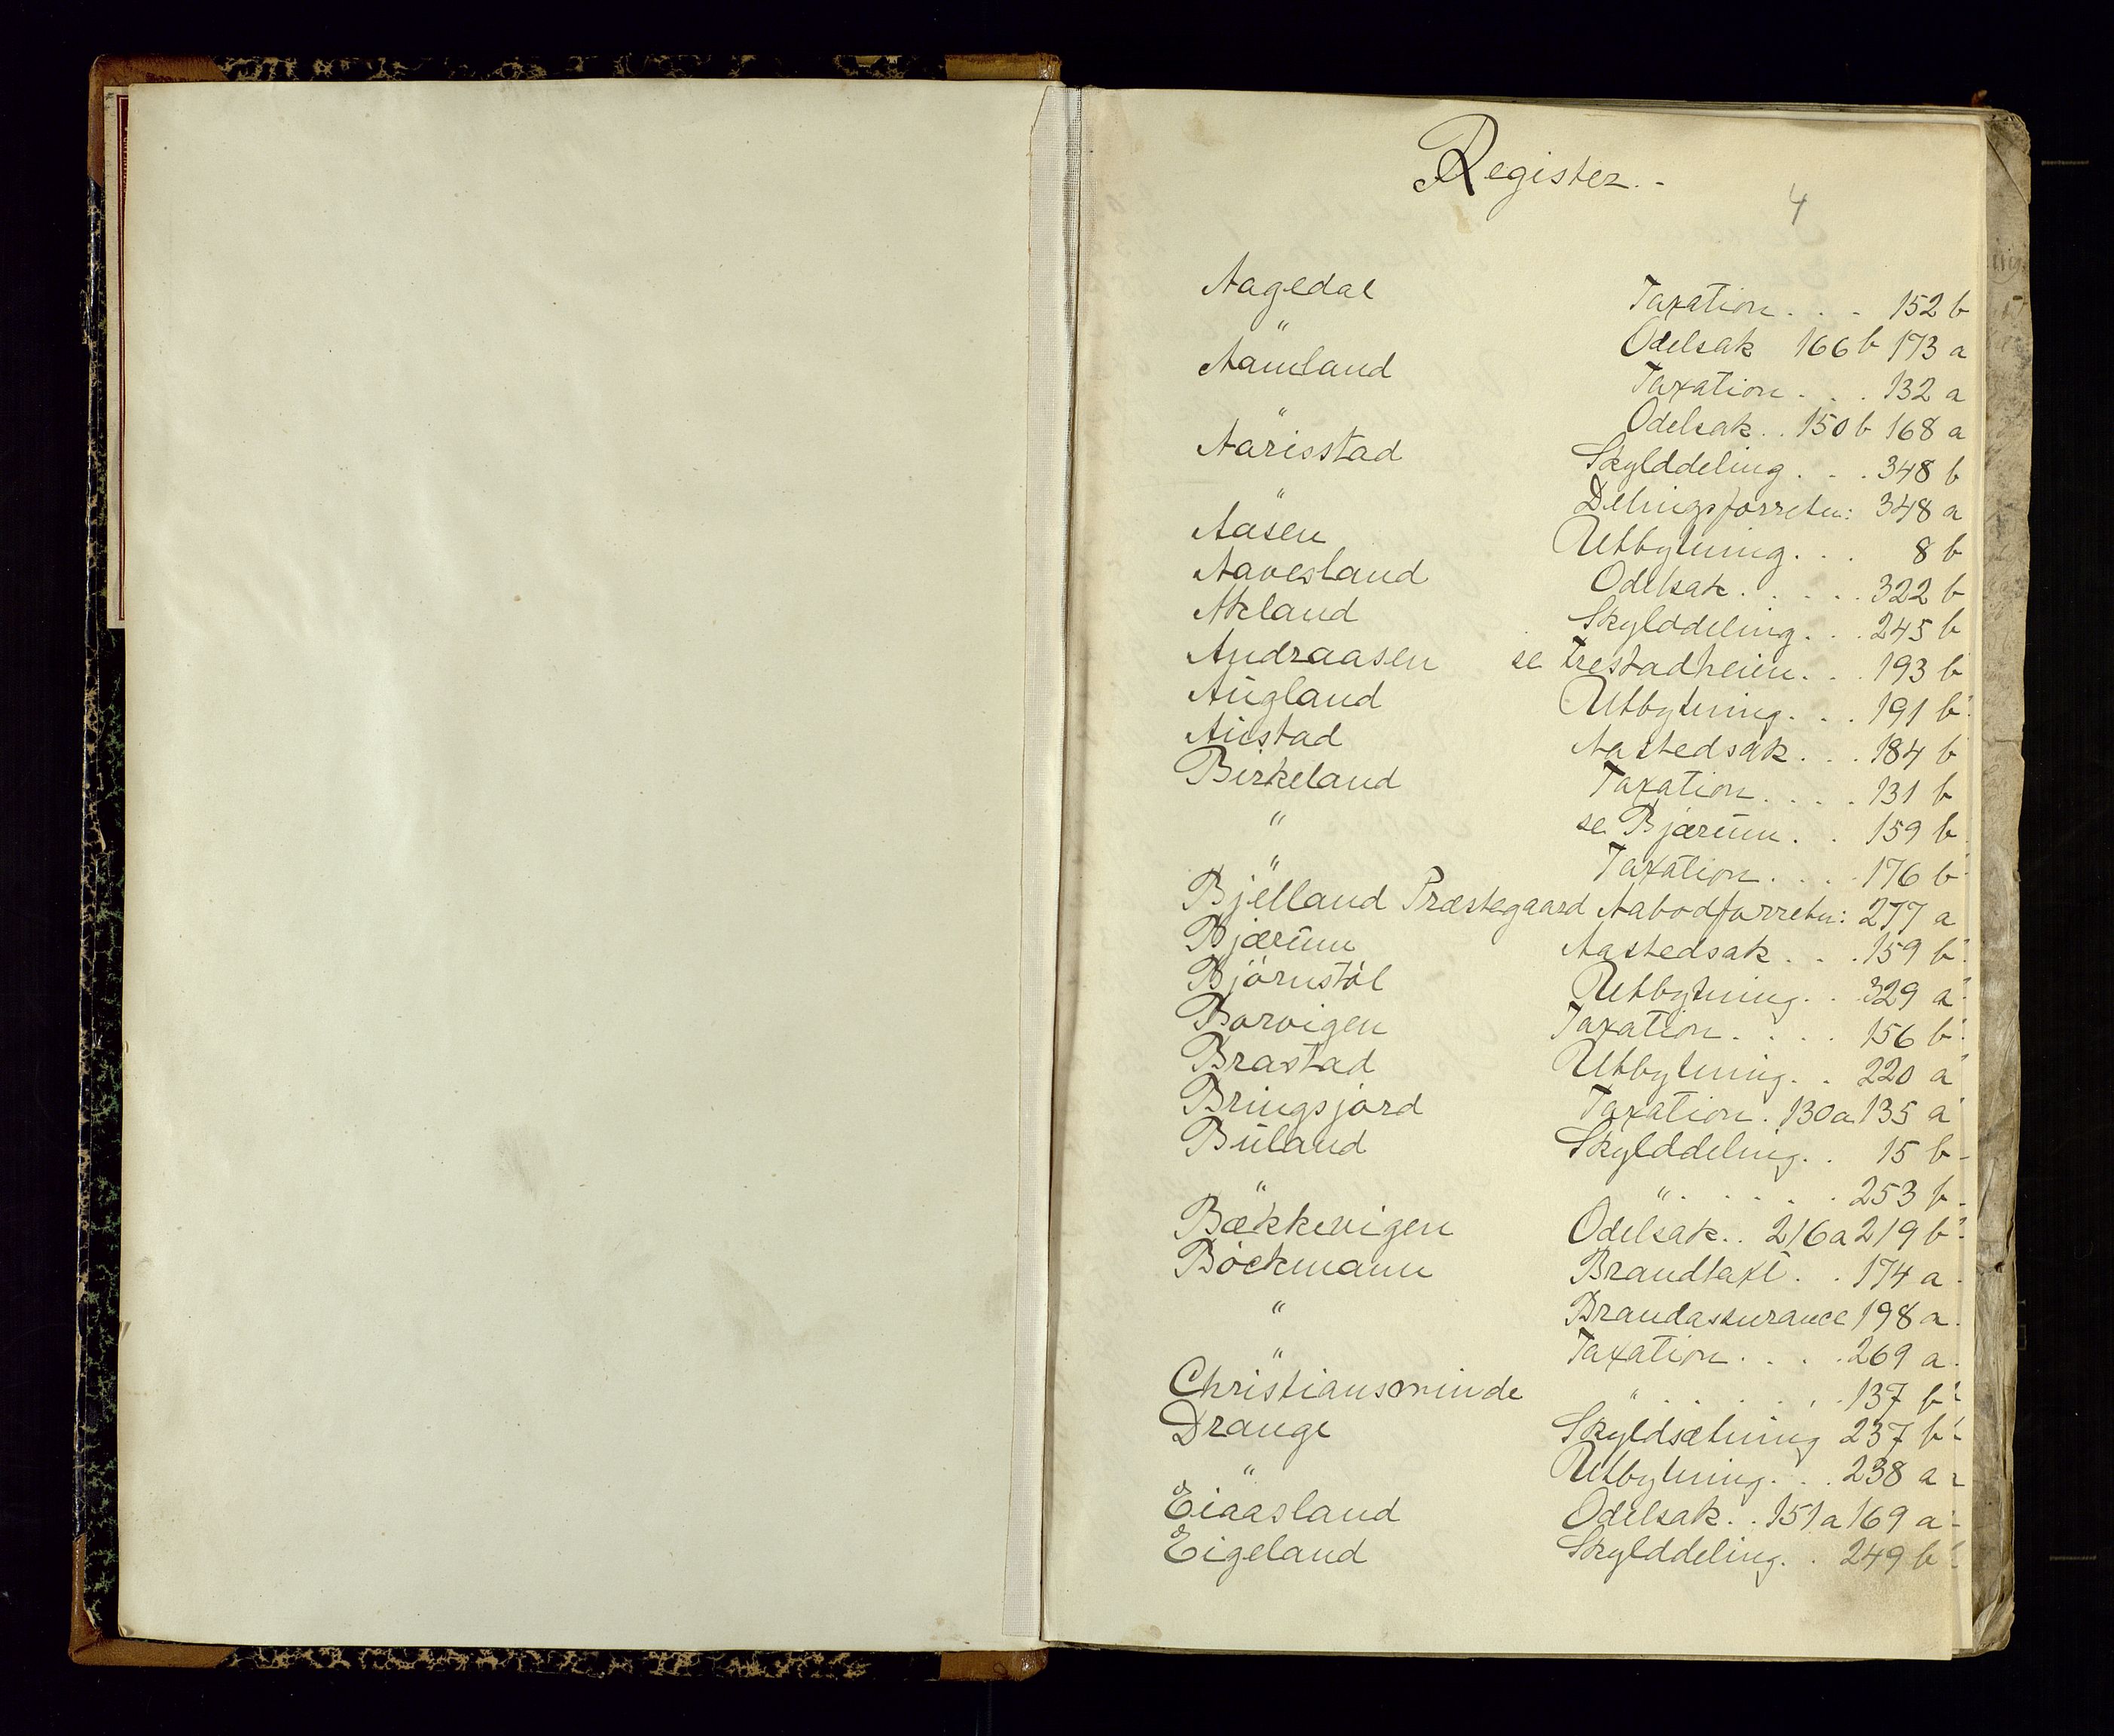 Register. -
4
Aagedal Taxation . . . 152 b
" Odelsak 166 b 173 a
Aamland Taxation . . . 132 a
" Odelsak . . 150 b 168 a
Aarisstad Skylddeling . . . 348 b
" Delingsforretn: 348 a
Aasen Utbytning . . . 8 b
Aavesland Odelsak . . . . . 322 b
Akland Skylddeling . . . 245 b
Andraasen se Trestadheien . . . 193 b
Augland Utbytning . . . 191 b
Austad Aastedsak . . . 184 b
Birkeland Taxation . . . . 131 b
" se Bjærum . . 159 b
" Taxation . . . . 176 b
Bjelland Præstegaard Aabodforretn: 277 a
Bjærum Aastedsak . . . 159 b
Bjørnstøl Utbytning . . . 329 a
Borvigen Taxation . . . . 156 b
Brastad Utbytning . . 220 a
Bringsjord Taxation . 130 a 135 a
Buland Skylddeling . . 15 b
" " . . . . . 253 b
Bækkevigen Odelsak . . 216 a 219 b
Bøckmann Brandtaxt . . 174 a
" Brandassurance 198 a
" Taxation . . . . 269 a
Christiansminde " . . . . . 137 b
Drange Skyldsætning 237 b
" Utbytning . . . 238 a
Eiaasland Odelsak . . 151 a 169 a
Eigeland Skylddeling . . 249 b